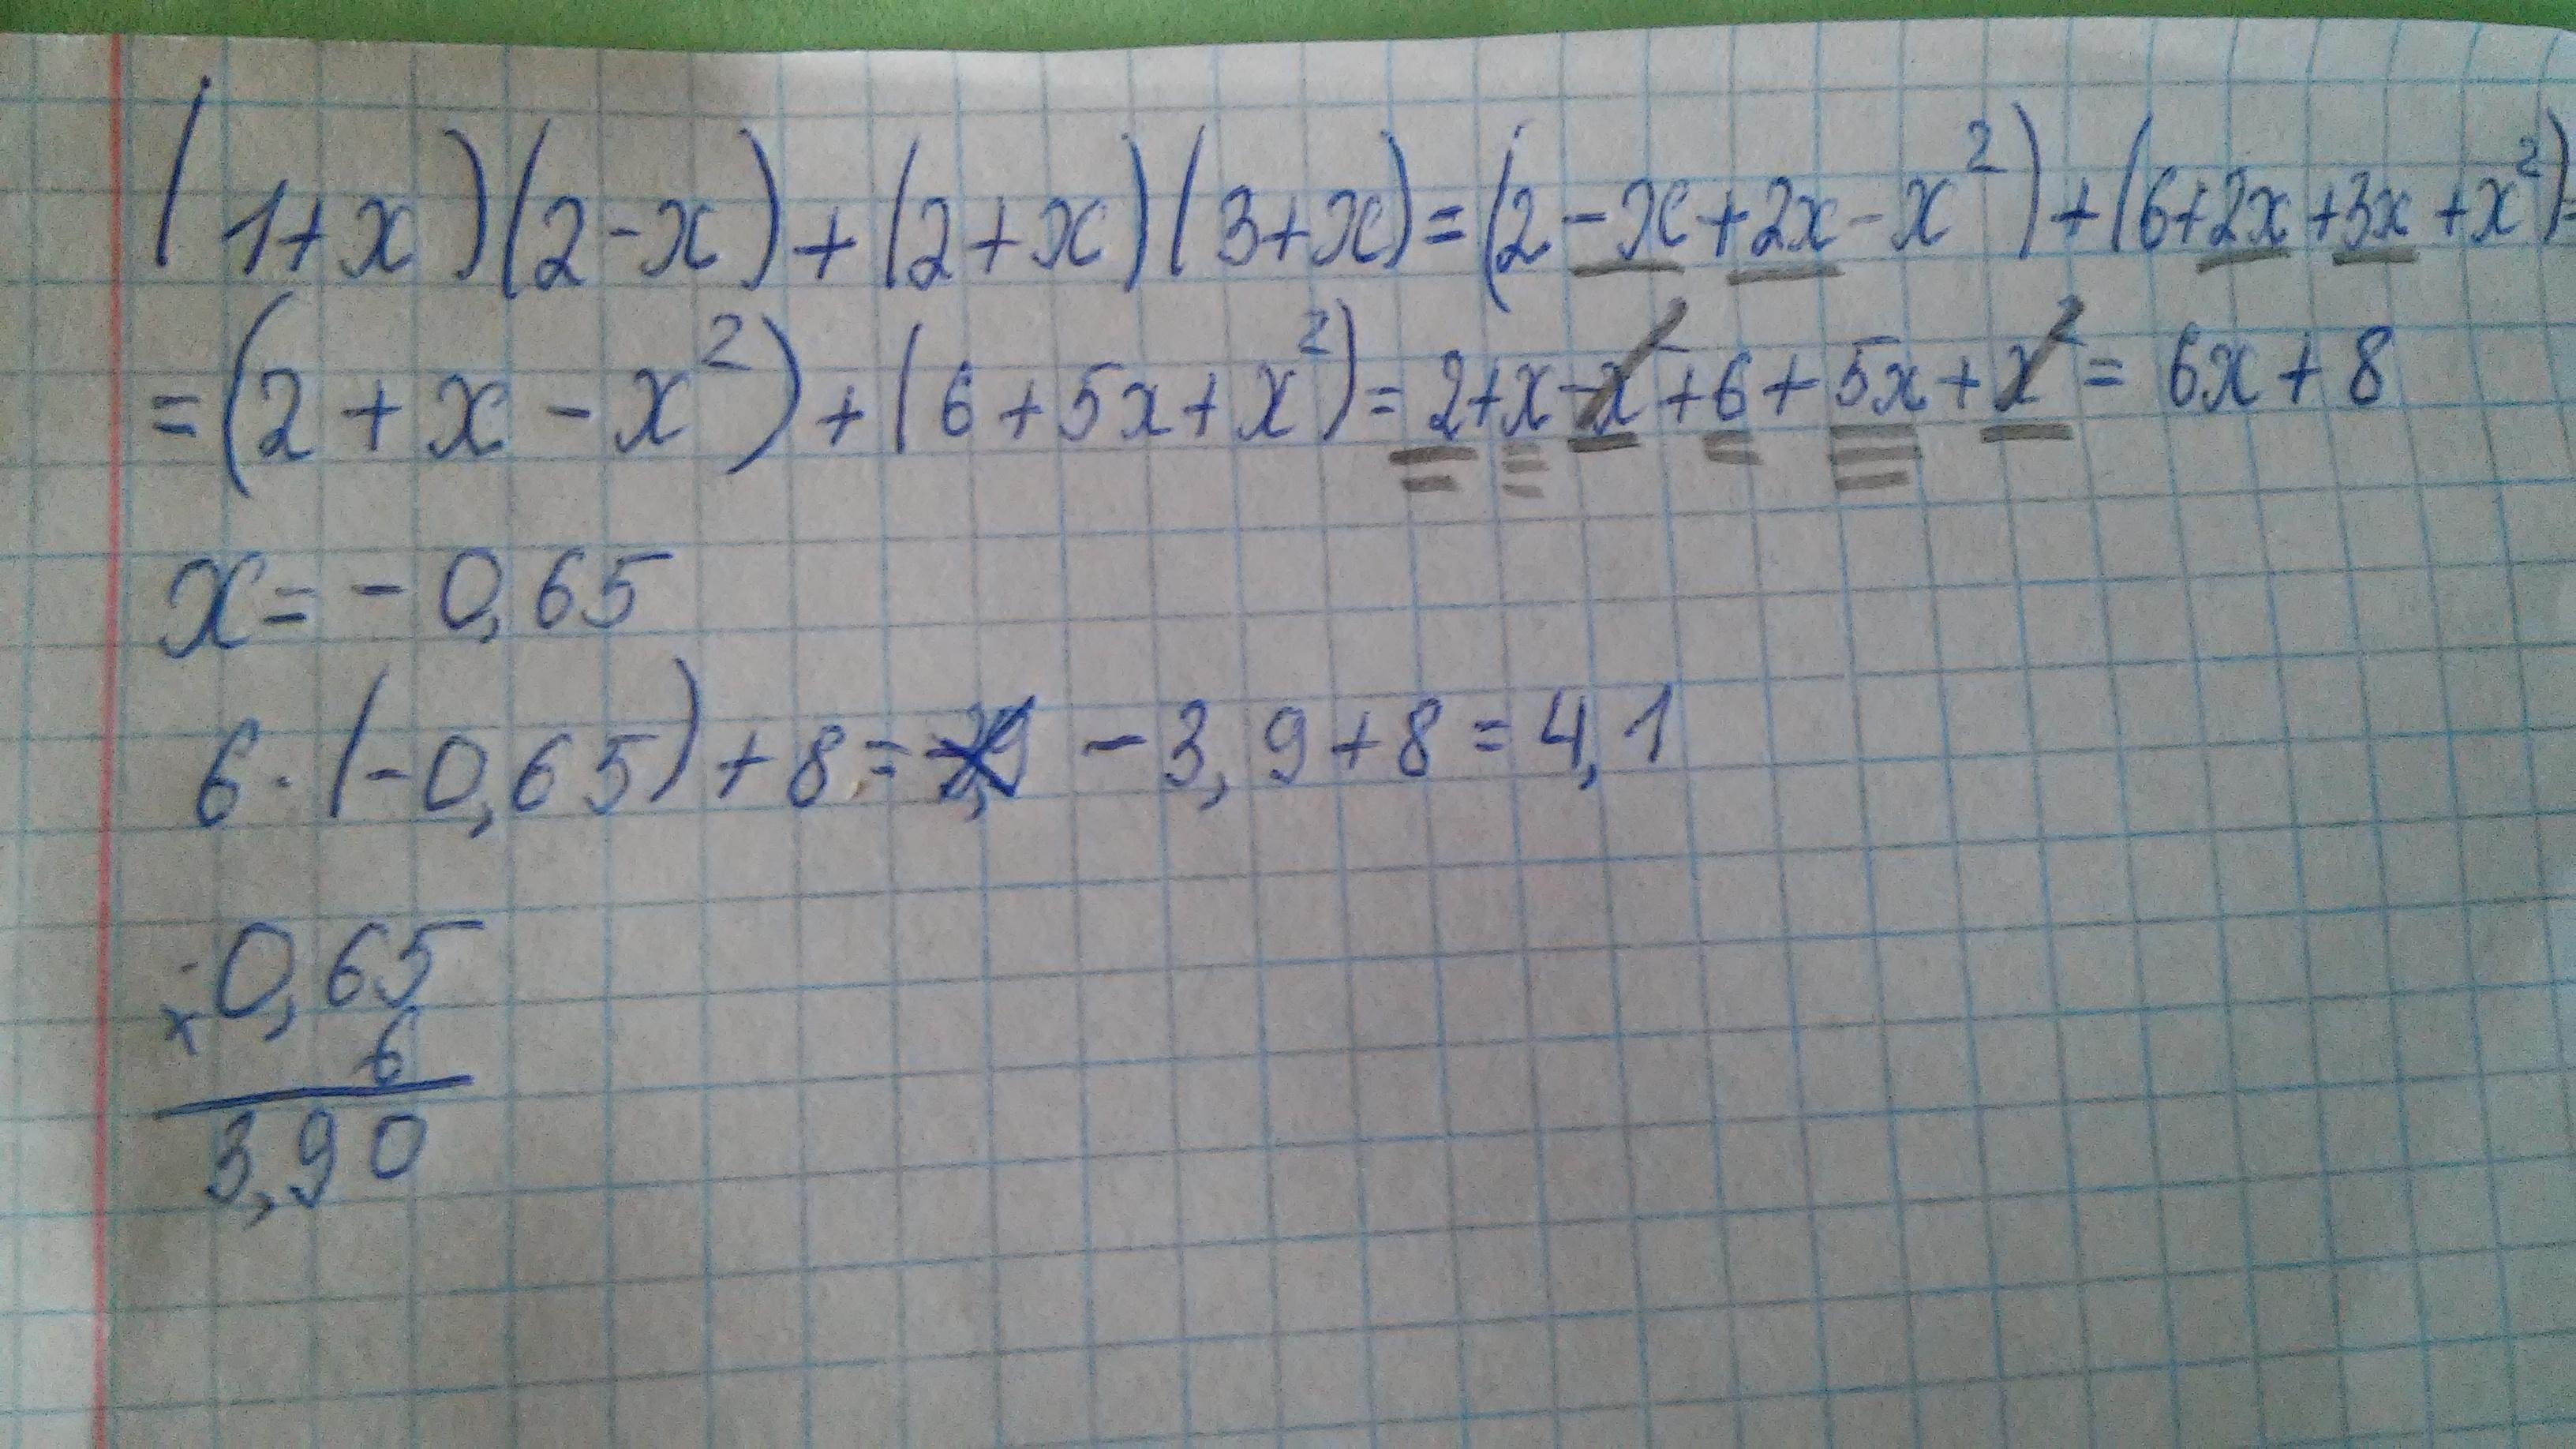 (1+x)(2-x)+(2+x)(3+x)=(2-x+2x-x²)+(6+2x+3x+x²)=
=(2+x-x²)+(6+5x+x²)=2+x-x²+6+5x+x²=6x+8
x=-0,65
6·(-0,65)+8=-3,9+8=4,1
-0,65
x
6
3,90